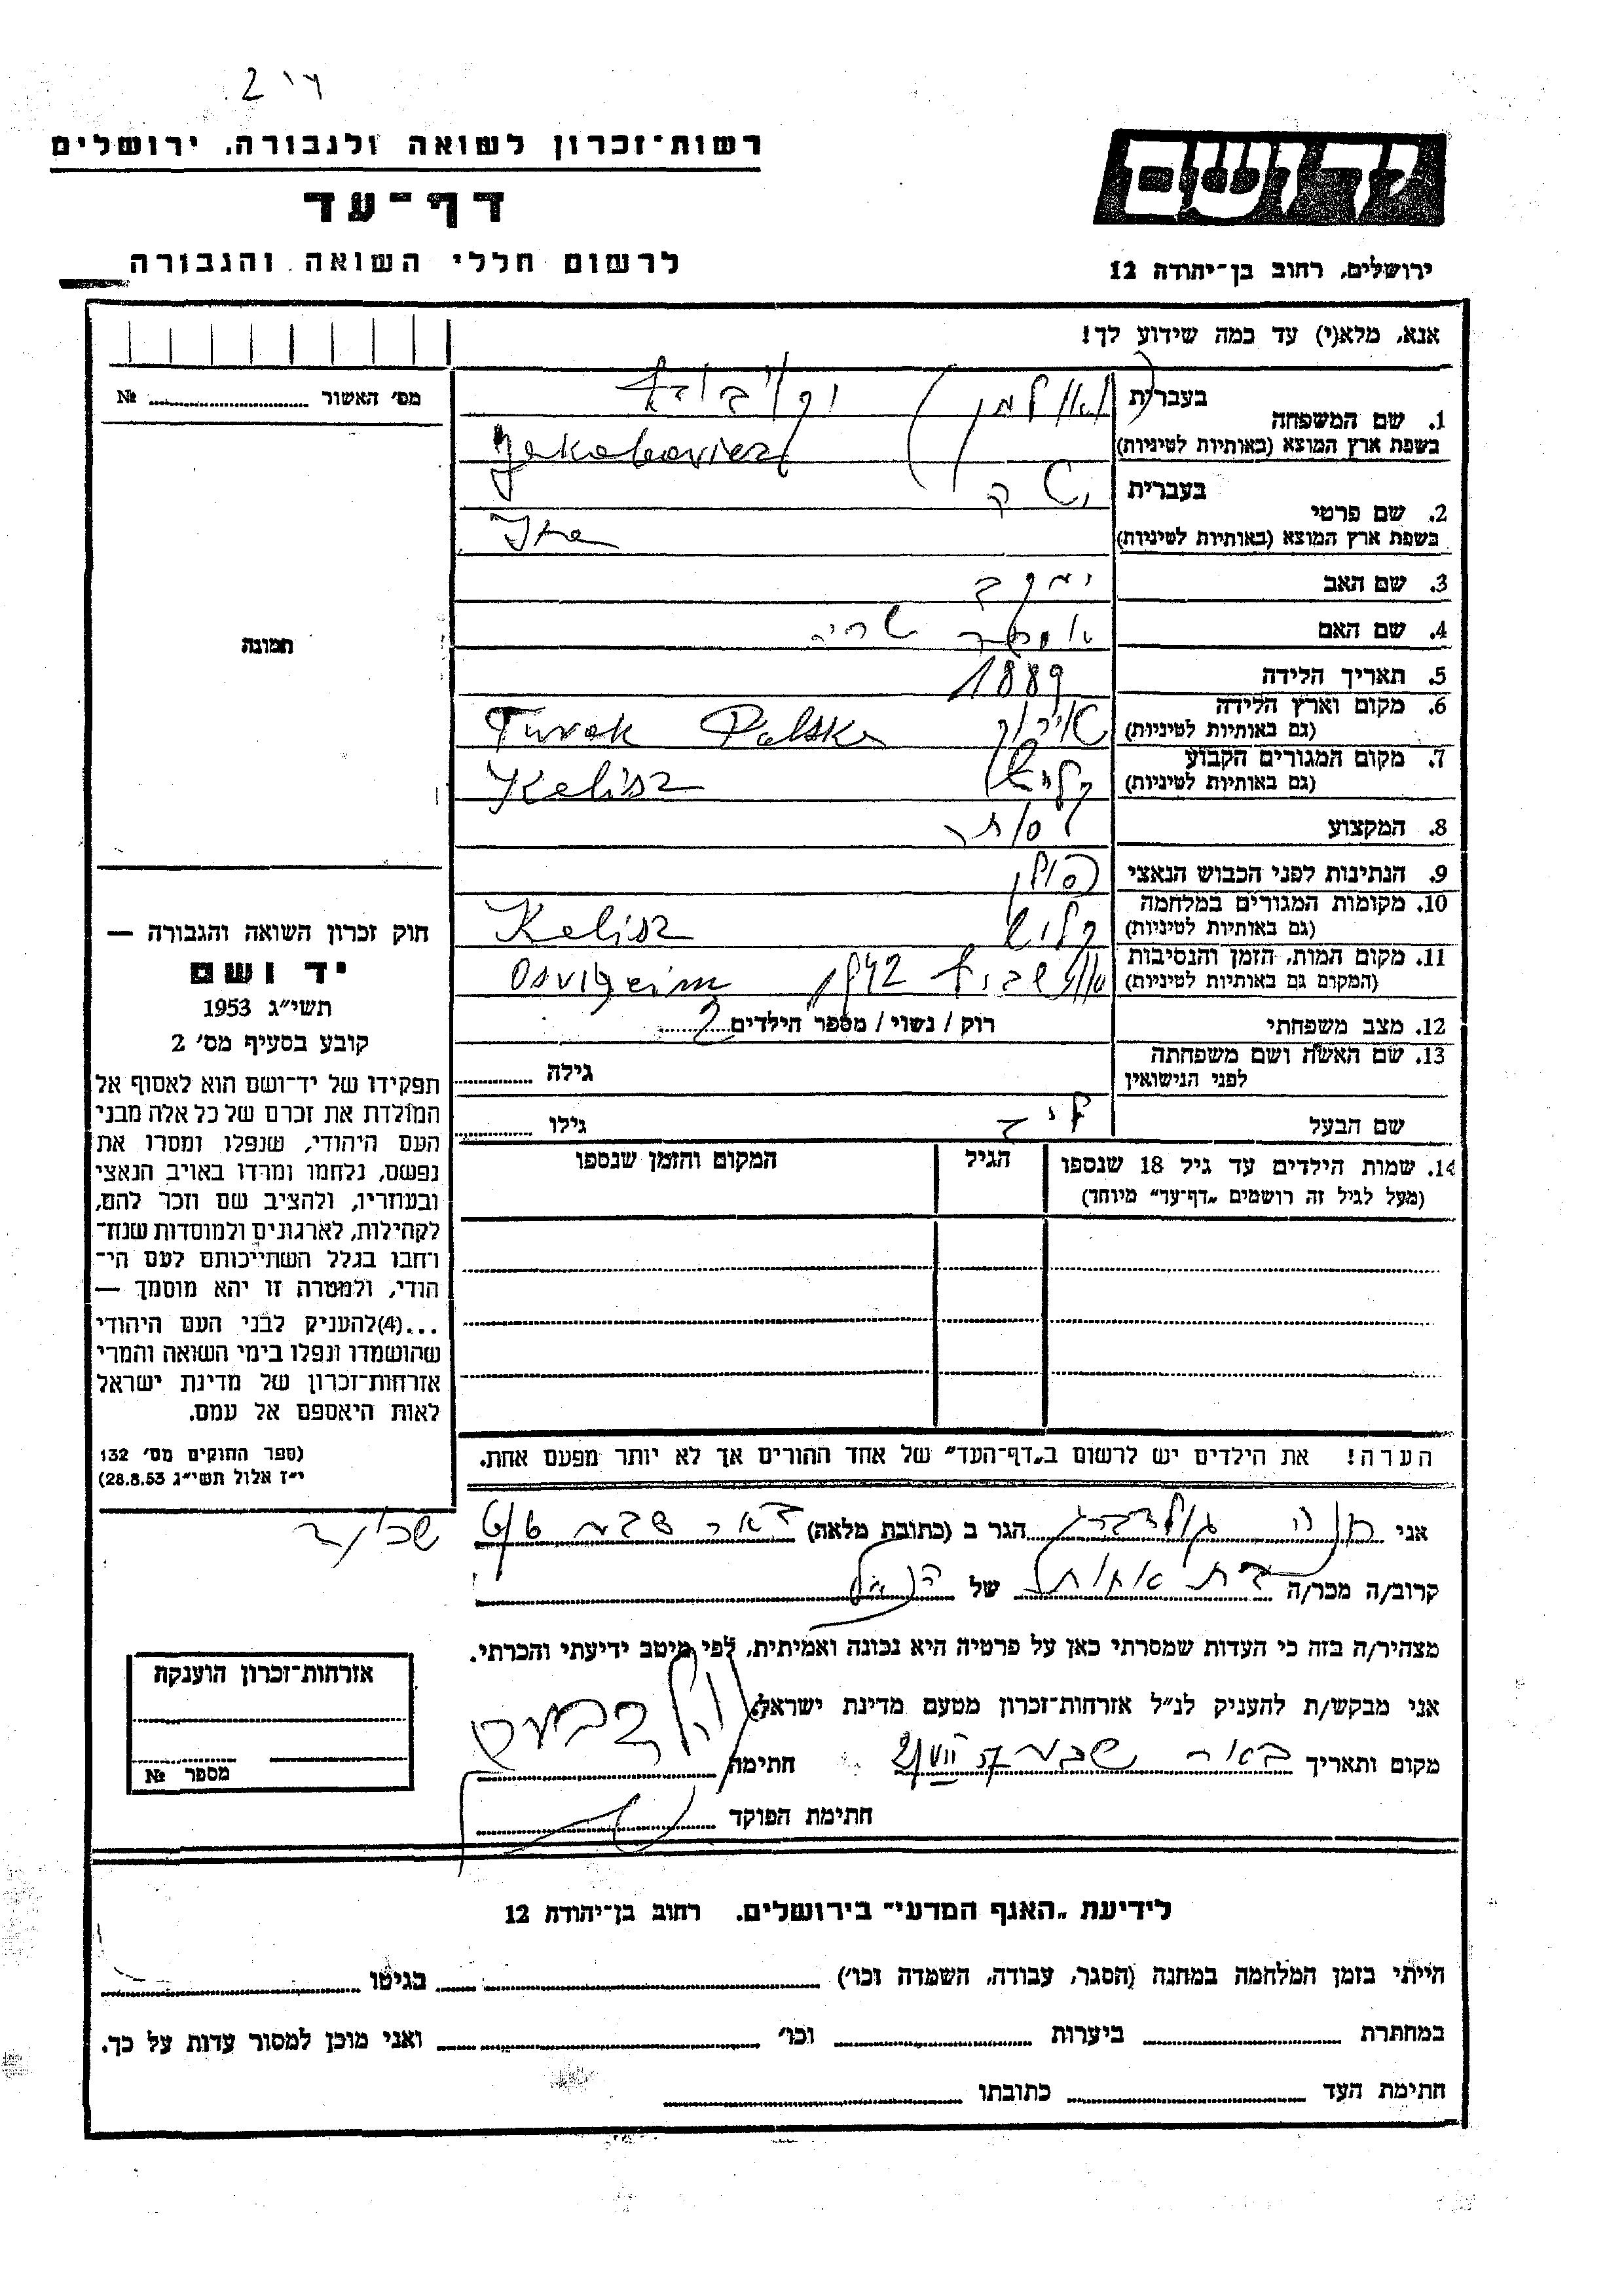 רשות-זכרון לשואה ולגבורה, ירושלים
דף-עד
לרשום חללי השואה והגבורה
ידושם
ירושלים, רחוב בן-יהודה 12
אנא, מלא(י) עד כמה שידוע לך!
מס׳ האשור № ........
1. שם המשפחה
בעברית
בשפת ארץ המוצא (באותיות לטיניות) Jakobowicz
2. שם פרטי
בעברית
בשפת ארץ המוצא (באותיות לטיניות)
3. שם האב יעקב
4. שם האם
5. תאריך הלידה 1889
6. מקום וארץ הלידה
(גם באותיות לטיניות) Turek Polska
7. מקום המגורים הקבוע
(גם באותיות לטיניות) קליש Kalisz
8. המקצוע
9. הנתינות לפני הכבוש הנאצי פולין
10. מקומות המגורים במלחמה
(גם באותיות לטיניות) קליש Kalisz
11. מקום המות, הזמן והנסיבות
(המקום גם באותיות לטיניות) 1942
12. מצב משפחתי רוק / נשוי / מספר הילדים 2
13. שם האשה ושם משפחתה
לפני הנישואין
גילה ........
שם הבעל גילו ........
14. שמות הילדים עד גיל 18 שנספו
(מעל לגיל זה רושמים „דף-עד״ מיוחד)
הגיל
המקום והזמן שנספו
תמונה
חוק זכרון השואה והגבורה —
יד ושם
תשי״ג 1953
קובע בסעיף מס׳ 2
תפקידו של יד-ושם הוא לאסוף אל
המולדת את זכרם של כל אלה מבני
העם היהודי, שנפלו ומסרו את
נפשם, נלחמו ומרדו באויב הנאצי
ובעוזריו, ולהציב שם וזכר להם,
לקהילות, לארגונים ולמוסדות שנח-
רבו בגלל השתייכותם לעם הי-
הודי, ולמטרה זו יהא מוסמך —
...(4)להעניק לבני העם היהודי
שהושמדו ונפלו בימי השואה והמרי
אזרחות-זכרון של מדינת ישראל
לאות היאספם אל עמם.
(ספר החוקים מס׳ 132
י״ז אלול תשי״ג 28.8.53)
הערה! את הילדים יש לרשום ב„דף-העד״ של אחד ההורים אך לא יותר מפעם אחת.
אני חנה גולדברג הגר ב (כתובת מלאה) באר שבע
קרוב/ה מכר/ה בת אחות של הנ״ל
מצהיר/ה בזה כי העדות שמסרתי כאן על פרטיה היא נכונה ואמיתית, לפי מיטב ידיעתי והכרתי.
אני מבקש/ת להעניק לנ״ל אזרחות-זכרון מטעם מדינת ישראל.
מקום ותאריך באר שבע חתימה גולדברג
חתימת הפוקד
אזרחות-זכרון הוענקה
מספר №
לידיעת „האגף המדעי״ בירושלים, רחוב בן-יהודה 12
הייתי בזמן המלחמה במחנה (הסגר, עבודה, השמדה וכו׳) ........ בגיטו ........
במחתרת ........ ביערות ........ וכו׳ ........ ואני מוכן למסור עדות על כך.
חתימת העד ........ כתובתו ........